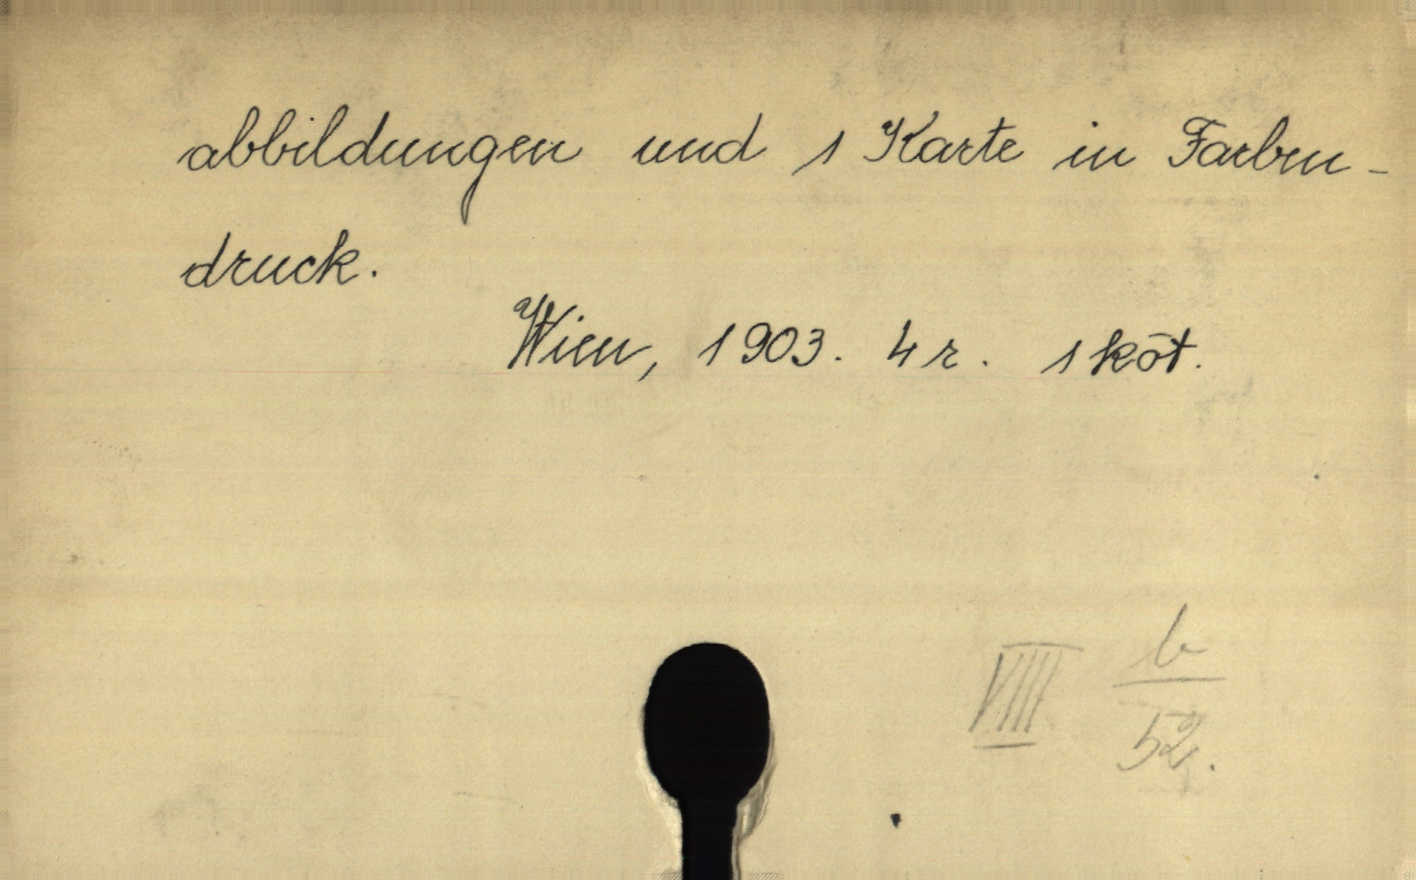 abbildungen und 1 Karte in Farben-
druck.
Wien, 1903. 4 r. 1 köt.
VIIII b
52.